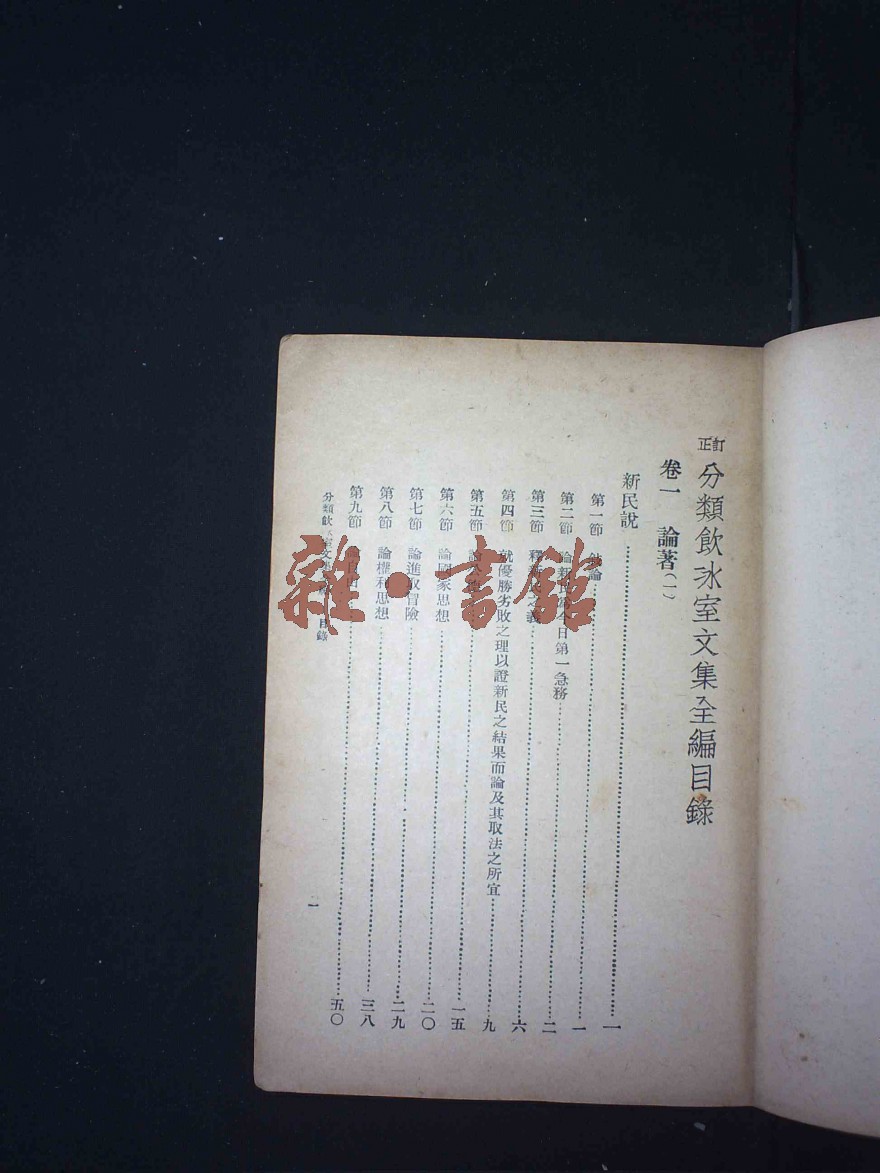 訂正 分類飲冰室文集全編目錄
卷一 論著(一)
新民說……一
第一節 論……一
第二節 論新民為今日第一急務……二
第三節 釋新民之義……六
第四節 就優勝劣敗之理以證新民之結果而論及其取法之所宜……九
第五節 論……一五
第六節 論國家思想……二〇
第七節 論進取冒險……二九
第八節 論權利思想……三八
第九節 論自由……五〇
分類飲 室文集 目錄
一
雜·書館